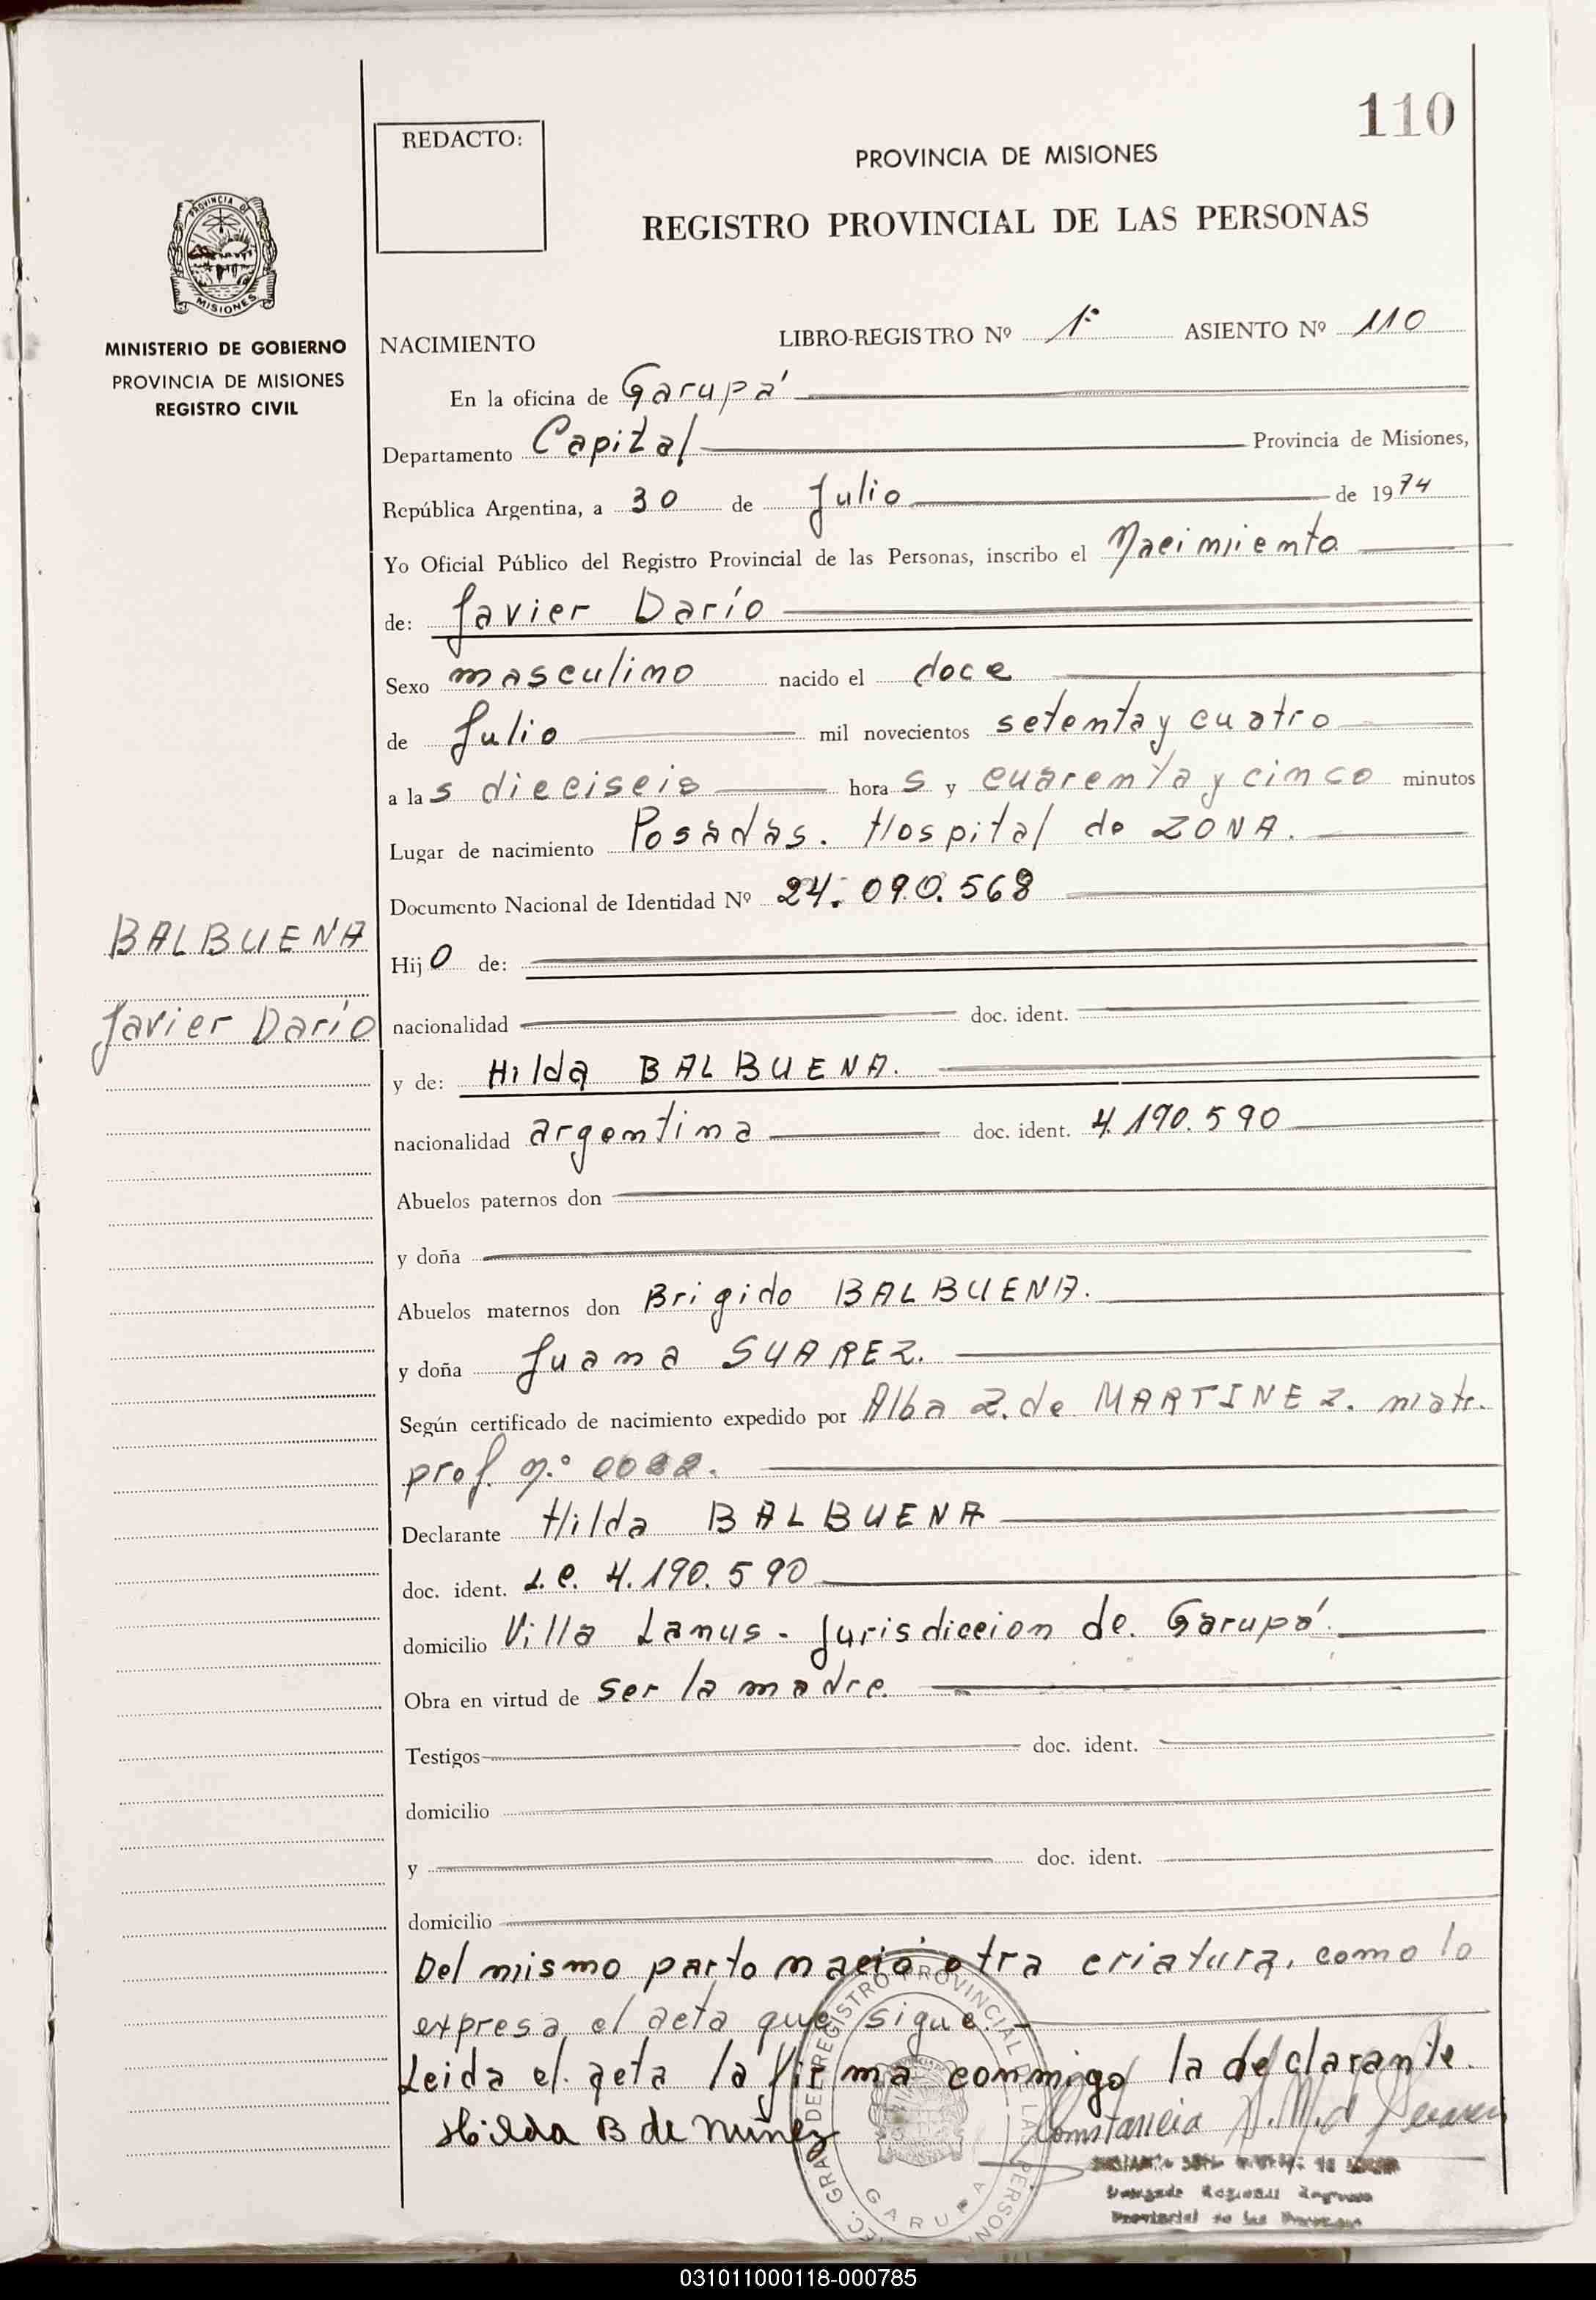 110
REDACTO:
PROVINCIA DE MISIONES
REGISTRO PROVINCIAL DE LAS PERSONAS
PROVINCIA DE
MISIONES
MINISTERIO DE GOBIERNO
PROVINCIA DE MISIONES
REGISTRO CIVIL
NACIMIENTO LIBRO-REGISTRO Nº 1º ASIENTO Nº 110
En la oficina de Garupá
Departamento Capital Provincia de Misiones,
República Argentina, a 30 de Julio de 1974
Yo Oficial Público del Registro Provincial de las Personas, inscribo el Nacimiento
de: Javier Darío
Sexo masculino nacido el doce
de Julio mil novecientos setenta y cuatro
a las dieciseis horas y cuarenta y cinco minutos
Lugar de nacimiento Posadas. Hospital de ZONA.
Documento Nacional de Identidad Nº 24.090.568
BALBUENA
Javier Darío
Hijo de:
nacionalidad doc. ident.
y de: Hilda BALBUENA.
nacionalidad argentina doc. ident. 4.190.590
Abuelos paternos don
y doña
Abuelos maternos don Brigido BALBUENA.
y doña Juana SUAREZ.
Según certificado de nacimiento expedido por Alba Z. de MARTINEZ. matr.
prof. n.º
Declarante Hilda BALBUENA
doc. ident. L.C. 4.190.590
domicilio Villa Lanus - Jurisdiccion de. Garupá.
Obra en virtud de ser la madre.
Testigos doc. ident.
domicilio
y doc. ident.
domicilio
Del mismo parto nació otra criatura, como lo
expresa el acta que sigue. -
Leida el acta la firma conmigo la declarante.
Hilda B de Nuñez
Constancia
REGISTRO PROVINCIAL DE LAS
GARUPA
Provincial de las
031011000118-000785